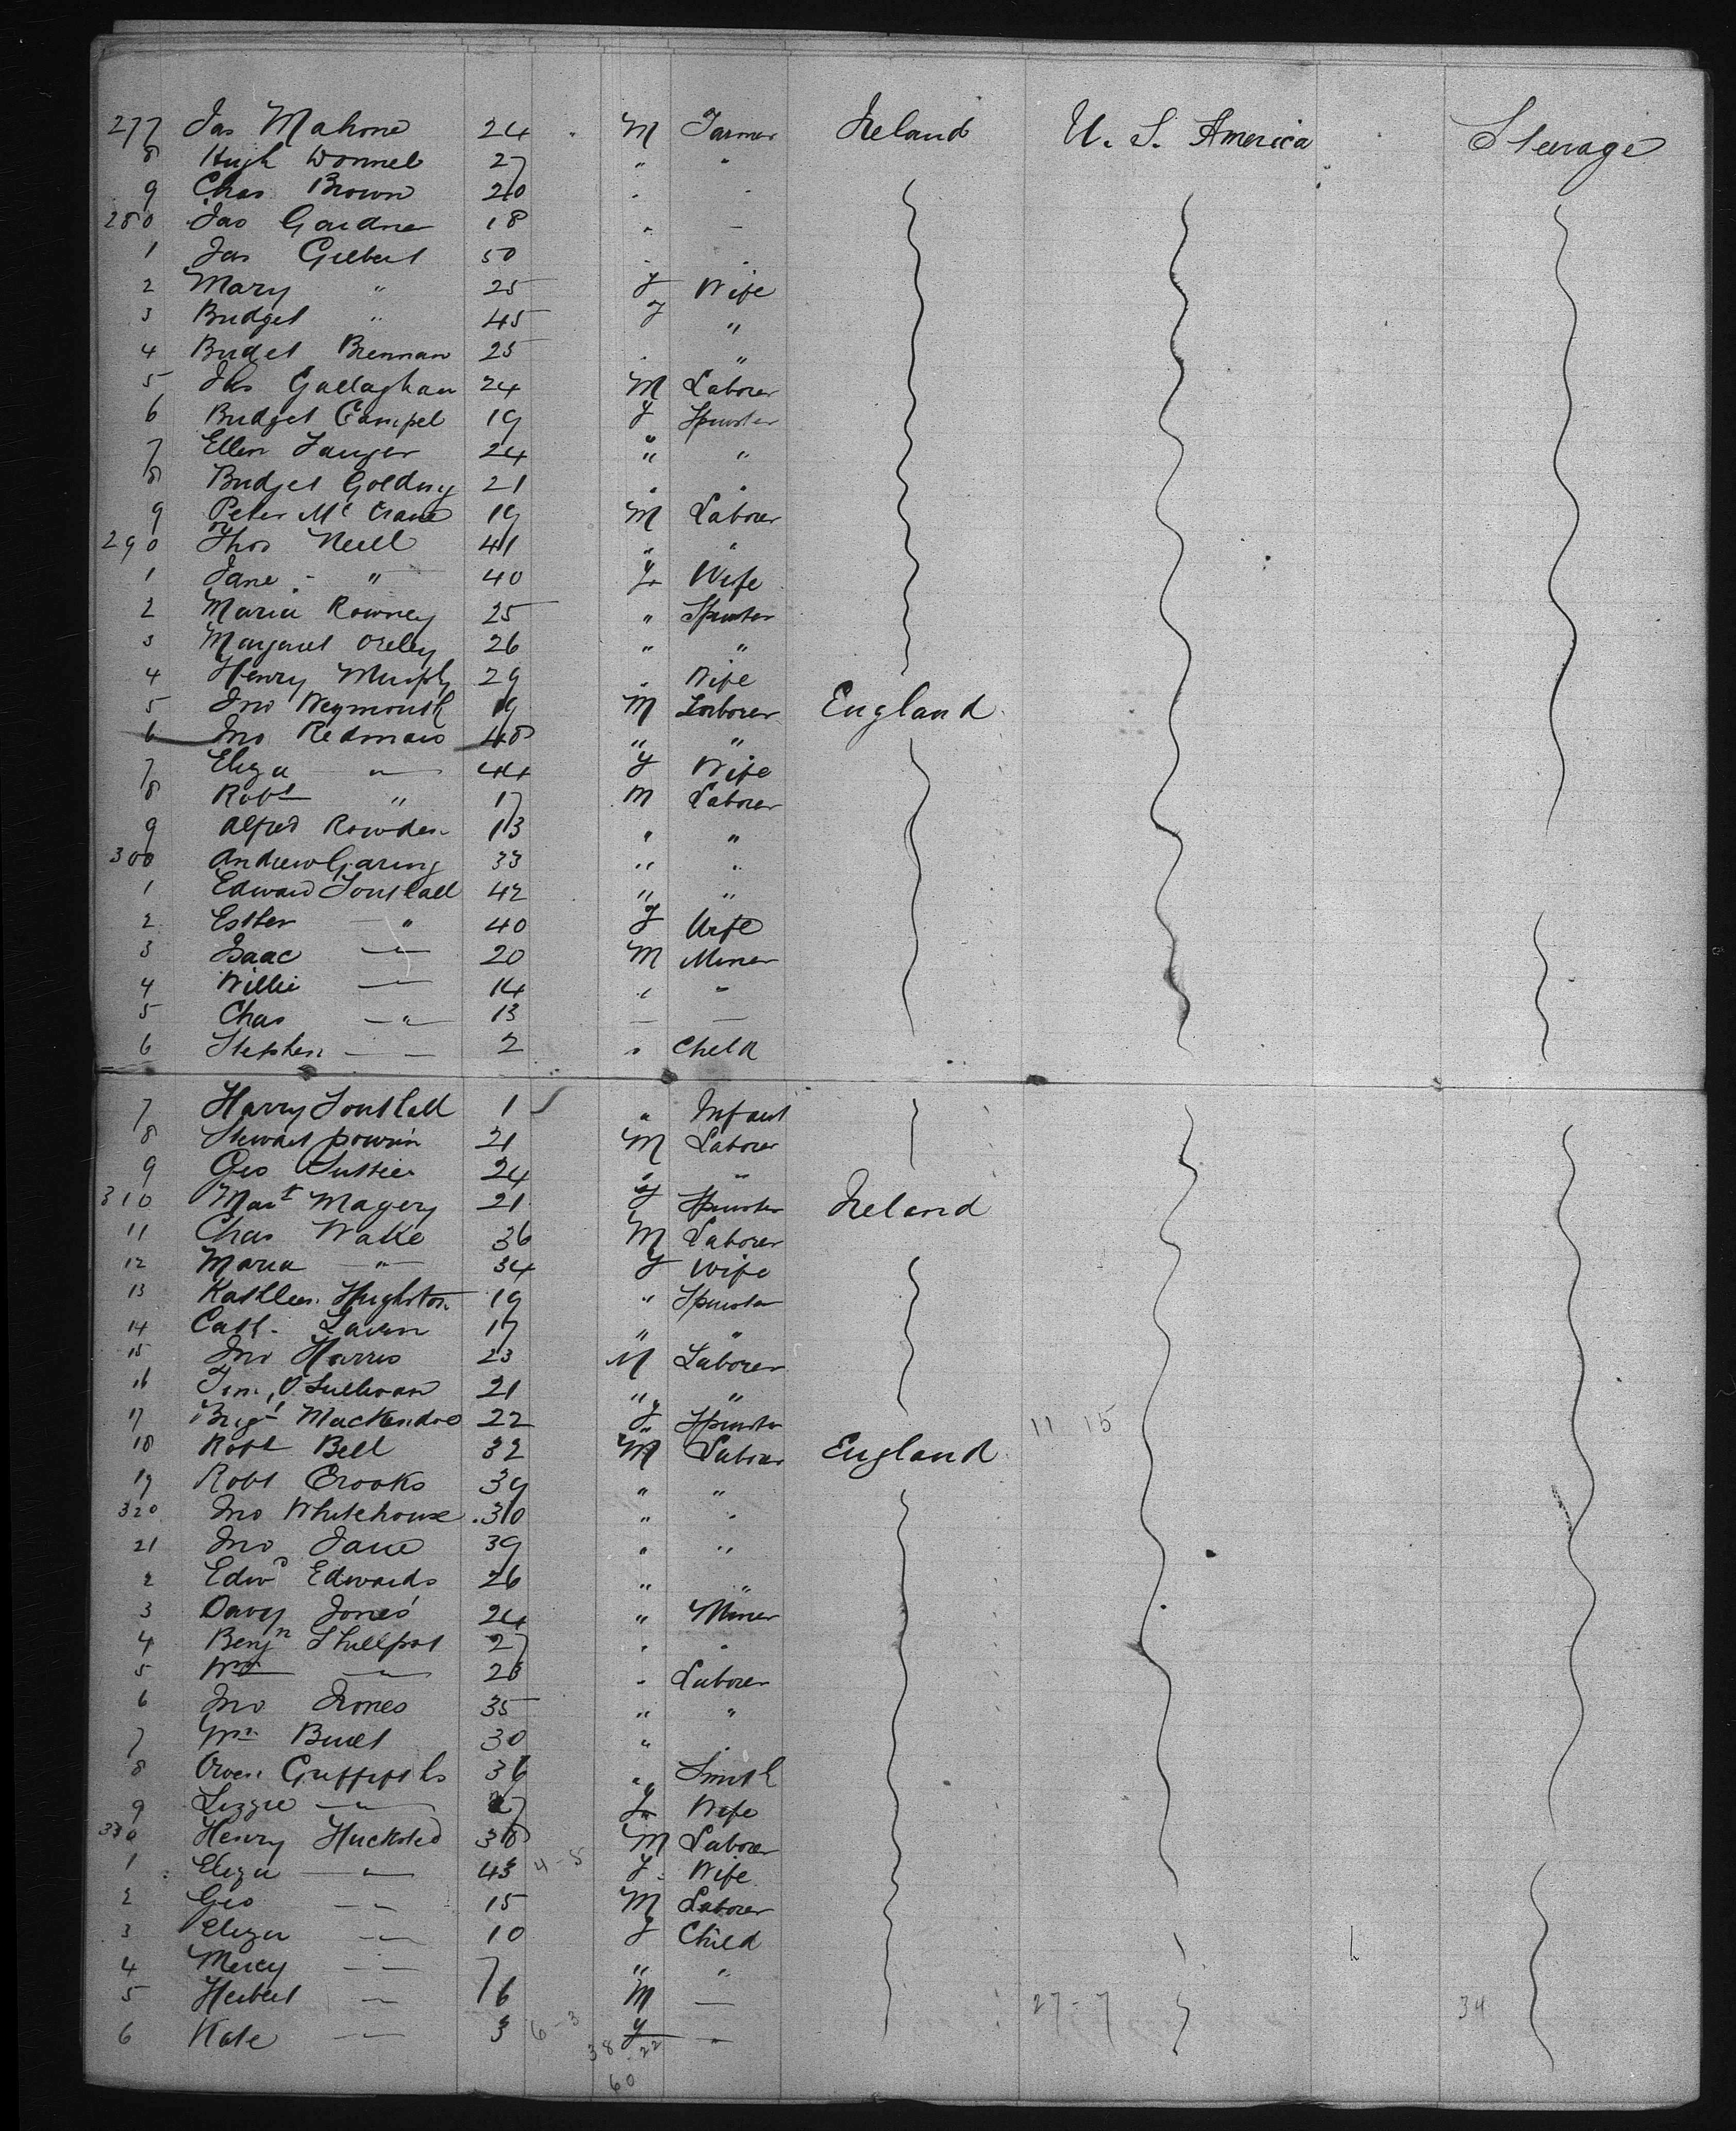 277 Jas Mahone 24 M Farmer Ireland U. S. America Steerage
8 Hugh Donnel 27 " "
9 Chas Brown 20 " "
280 Jas Gardner 18 " -
1 Jas Gilbert 50 " "
2 Mary " 25 F Wife
3 Bridget " 45 F "
4 Bridet Brennan 25 " "
5 Jas Gallaghan 24 M Laborer
6 Bridget Campel 19 F Spinster
7 Ellen 24 " "
8 Bridget Golding 21 " "
9 Peter Mc Crane 19 M Laborer
290 Thos Neill 41 " "
1 Jane " 40 F Wife
2 Maria Rowney 25 " Spinster
3 Margaret 26 " "
4 Henry Murphy 29 " Wife
5 Jno Weymouth 19 M Laborer England
6 Jno Redman 48 " "
7 Eliza " 44 F Wife
8 Robt " 17 M Laborer
9 Alfred Rowden 13 " "
300 Andrew Garing 33 " "
1 Edward Tonstall 42 " "
2 Esther " 40 F Wife
3 Isaac " 20 M Miner
4 Willie — 14 " "
5 Chas " 13 — —
6 Stephen — — 2 " Child
7 Harry Tonstall 1 " Infant
8 Stewart 21 M Laborer
9 Geo 24 " "
310 Mart Magery 21 F Spinster Ireland
11 Chas Walke 36 M Laborer
12 Maria " 34 F Wife
13 Kathleen Hughston 19 " Spinster
14 Cath. Lavin 17 " "
15 Jno Harris 23 M Laborer
16 Tim O'Sullivan 21 " "
17 Brigt Mackendro 22 F Spinster 11 15
18 Robt Bell 32 M Laborer England
19 Robt Crooks 39 " "
320 Jno Whitehouse 30 " "
21 Jno Jane 39 " "
2 Edwd Edwards 26 " "
3 Davy Jones 24 " Miner
4 Benjn Shillpot 27 " "
5 Wm " 23 " Laborer
6 Jno Jrones 35 " "
7 Wm Burt 30 "
8 Owen Griffiths 36 " Smith
9 Lizzie " 27 F Wife
330 Henry Hucksted 38 M Laborer
1 Eliza " 43 4-5 F Wife
2 Geo " 15 M Laborer
3 Eliza " 10 F Child
4 Mercy — 7 " "
5 Herbert — 6 M — 27-7 34
6 Kate — 3 6-3 F "
38 22
60